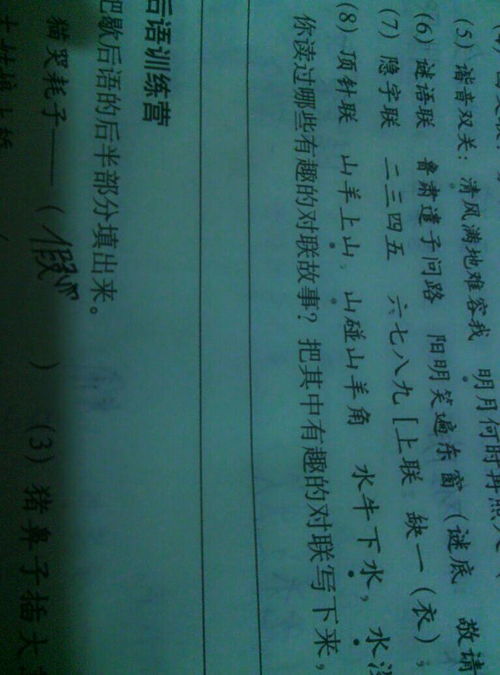 (5) 谐音双关：清风满地难容我 明月何时再照
(6) 谜语联 鲁肃遣子问路 阳明笑遍东窗（谜底 敬请
(7) 隐字联 二三四五 六七八九［上联 缺一（衣），
(8) 顶针联 山羊上山，山碰山羊角 水牛下水，水
你读过哪些有趣的对联故事？把其中有趣的对联写下来，
后语训练营
把歇后语的后半部分填出来。
猫哭耗子——（假 ） (3) 猪鼻子插大